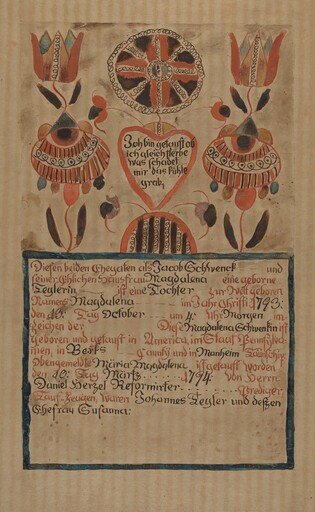 Ich bin getauft ob
ich gleich sterbe
was schadet
mir das kühle
grab,
Diesen beiden Ehegatten als Jacob Schwenck und
seiner Ehlichen Hausfrau Magdalena eine geborne
Zeglerin ist eine Tochter zur Welt geboren
Namens Magdalena im Jahr Christi 1793:
den Tag October um 4 Uhr Morgen im
zeichen der Diese Magdalena Schwenkin ist
geboren und getauft in America, im Staat Bensylva-
nien, in Berks Caunty und in Manheim Taunschip
Obengemeldte Maria Magdalena ist getauft worden
den Tag Martz 1794 von Herrn
Daniel Hertzel Reformirter Prediger
Tauf-Zeugen, waren Johannes Zegler und deßen
Ehefrau Susanna: